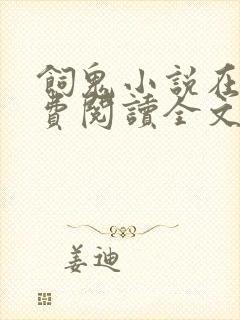 飼鬼小說在
費閱讀全文
姜迪